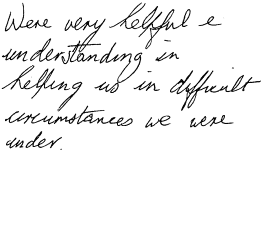 Were very helpful &
understanding in
helping us in difficult
circumstances we were
under.